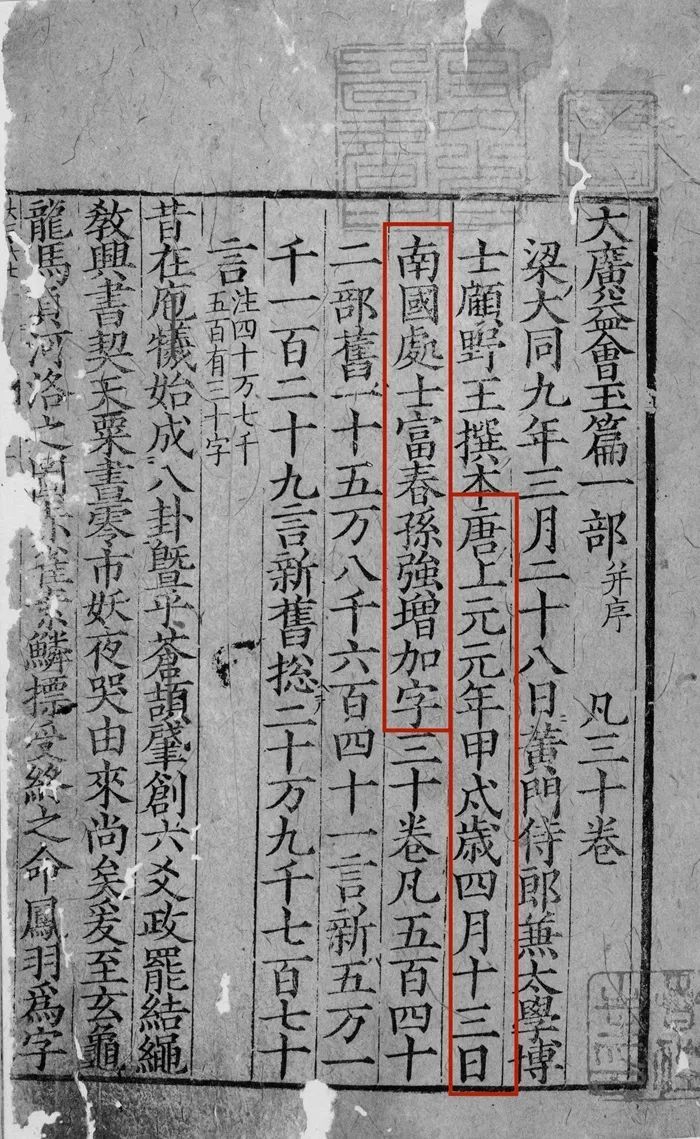 大廣益會玉篇一部 并序 凡三十卷
梁大同九年三月二十八日黄門侍郎兼太學博
士顧野王撰本唐上元元年甲戌歲四月十三日
南國處士富春孫強增加字三十卷凡五百四十
二部舊一十五万八千六百四十一言新五万一
千一百二十九言新舊捴二十万九千七百七十
言 注四十万七千
五百有三十字
昔在庖犧始成八卦曁乎蒼頡肇創六爻政罷結繩
教興書契天粟晝零市妖夜哭由來尚矣爰至玄龜
龍馬負河洛之圖赤雀素鱗摽受終之命鳳羽爲字